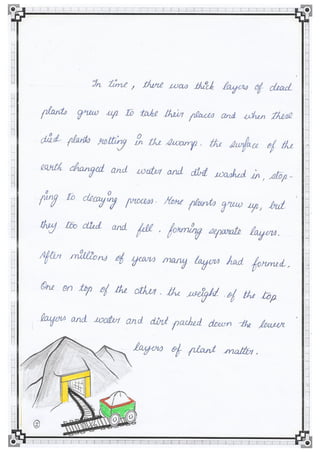 In time, there was thick layers of dead
plants grew up to take their places and when these
died plants rotting in the swamp. the surface of the
earth changed and water and dirt washed in, stop-
ping to decaying process. More plants grew up, but
they too died and fell. forming separate layers.
After millions of years many layers had formed.
One on top of the other. the weight of the top
layers and water and dirt packed down the lower
layers of plant matter.